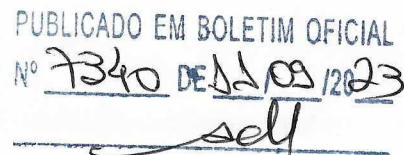 PUBLICADO EM BOLETIM OFICIAL
Nº 7340 DE 11/09/2023